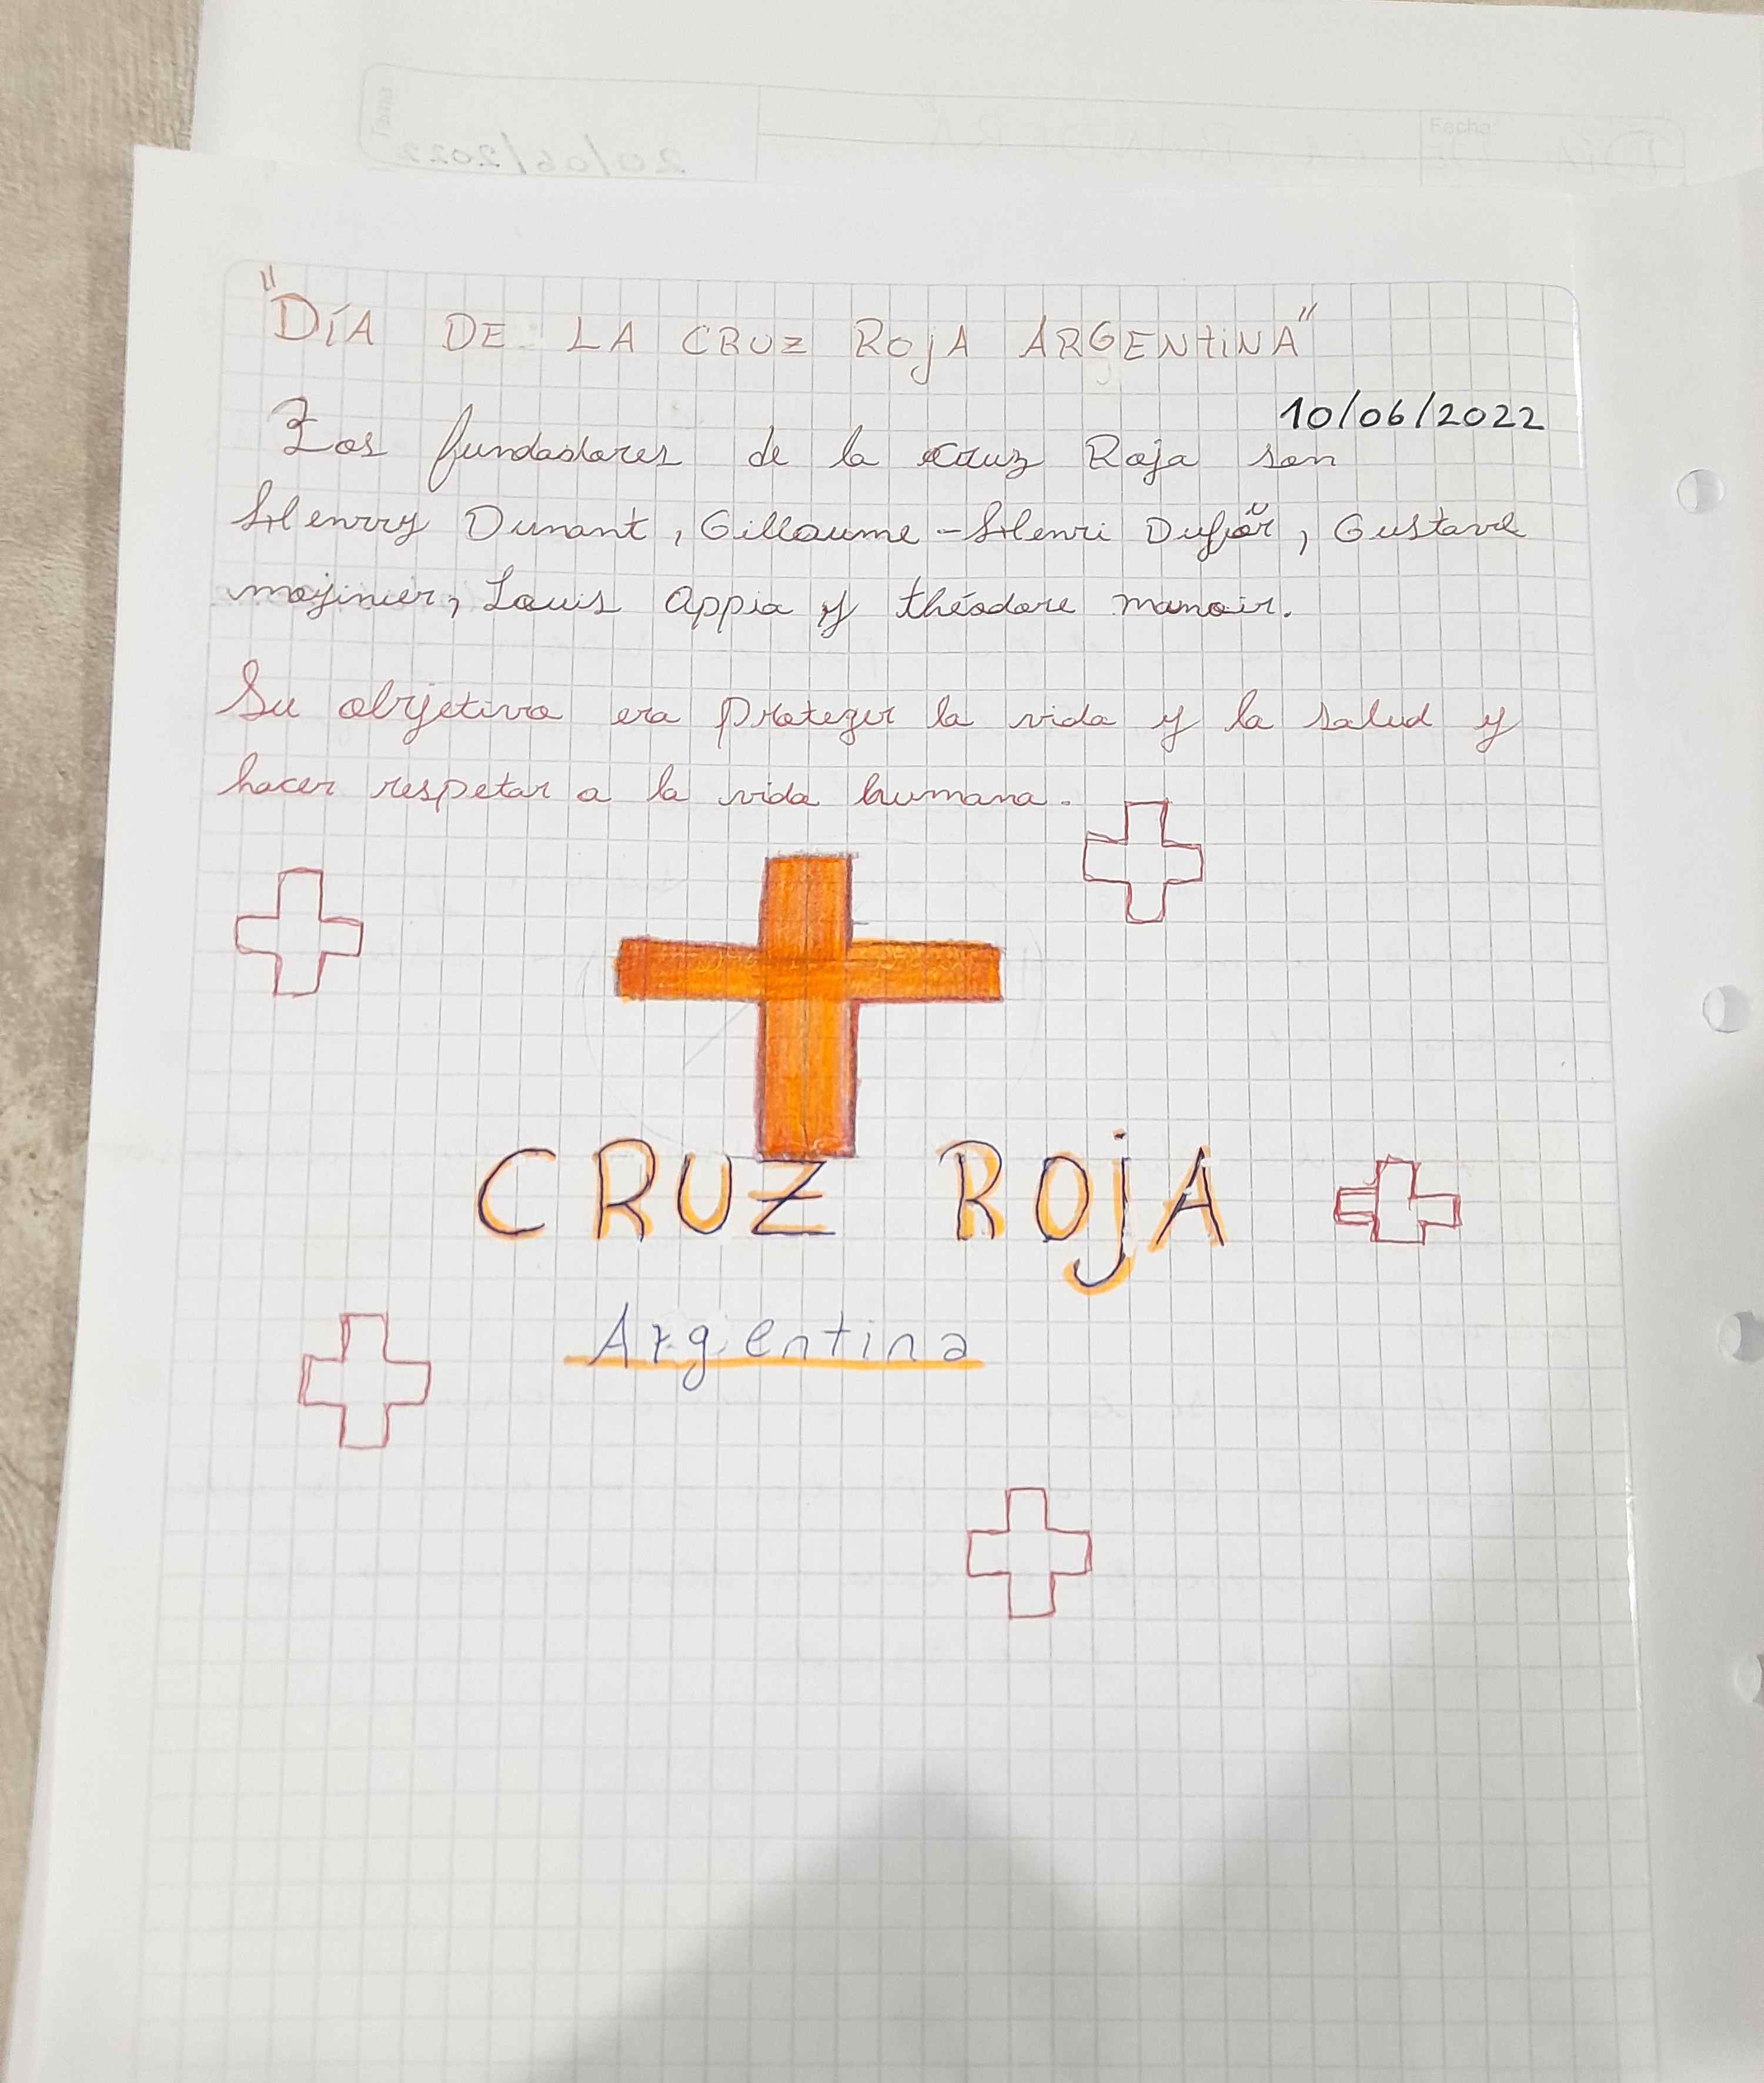 "DíA DE LA CRUZ ROjA ARGENtiNA"
10/06/2022
Los fundadores de la cruz Roja son
Henrry Dunant, Gillaume-Henri Dufor, Gustave
moyinier, Louis Appia y théodore manoir.
Su objetivo era proteger la vida y la salud y
hacer respetar a la vida humana.
CRUZ ROjA
Argentina
Fecha:
20/06/2022